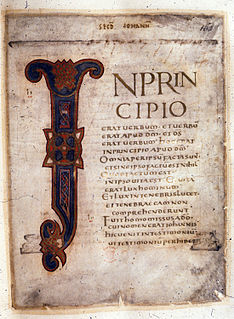 SECD IOHANN
IN PRIN
CIPIO
ERAT UERBUM · ET UERBU
ERAT APUD DM · ET DS
ERAT UERBUM · HOC ERAT
IN PRINCIPIO APUD DM
OMNIA PER IPSU FACTA SUN
ET SINE IPSO FACTU EST NIHIL
QUOD FACTUM EST
IN IPSO UITA EST · ET UITA
ERAT LUX HOMINUM
ET LUX IN TENEBRIS LUCET
ET TENEBRAE EAM NON
COMPREHENDERUNT
FUIT HOMO MISSUS A DO
CUI NOMEN ERAT IOHANNIS
HIC UENIT IN TESTIMONIU
UT TESTIMONIU PERHIBE